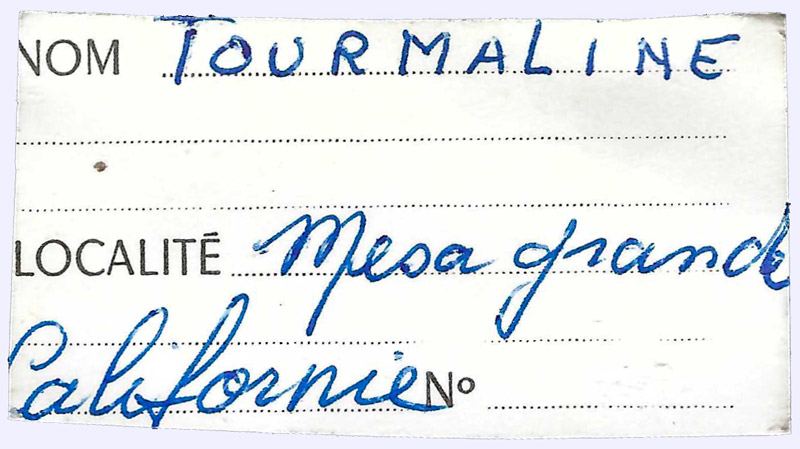 NOM TOURMALINE
LOCALITÉ Mesa grande
Californie Nº